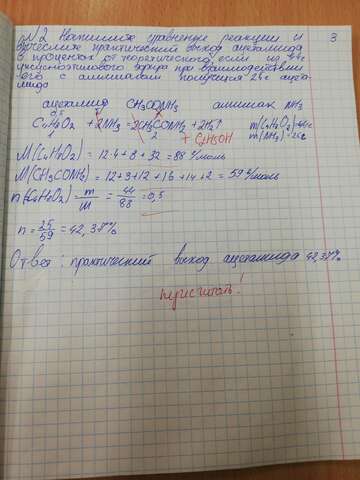 №2 Напишите уравнение реакции и
вычислите практический выход ацетамида
в процентах от теоретического, если из 44г
уксусноэтилового эфира при взаимодействии
его с аммиаком получится 25г ацета-
мида
3
ацетамид CH3CONH2 аммиак NH3
0,5
C4H8O2 + 2NH3 = 2CH3CONH2 + 2H2↑
+ C2H5OH
1 2
m(C4H8O2)=44г
m(NH3)=25г
M(C4H8O2) = 12·4+8+32=88 г/моль
M(CH3CONH2) = 12+3+12+16+14+2=59 г/моль
n(C4H8O2) = m/M = 44/88 = 0,5
n = 25/59 = 42,37%
Ответ: практический выход ацетамида 42,37%
пересчитать!